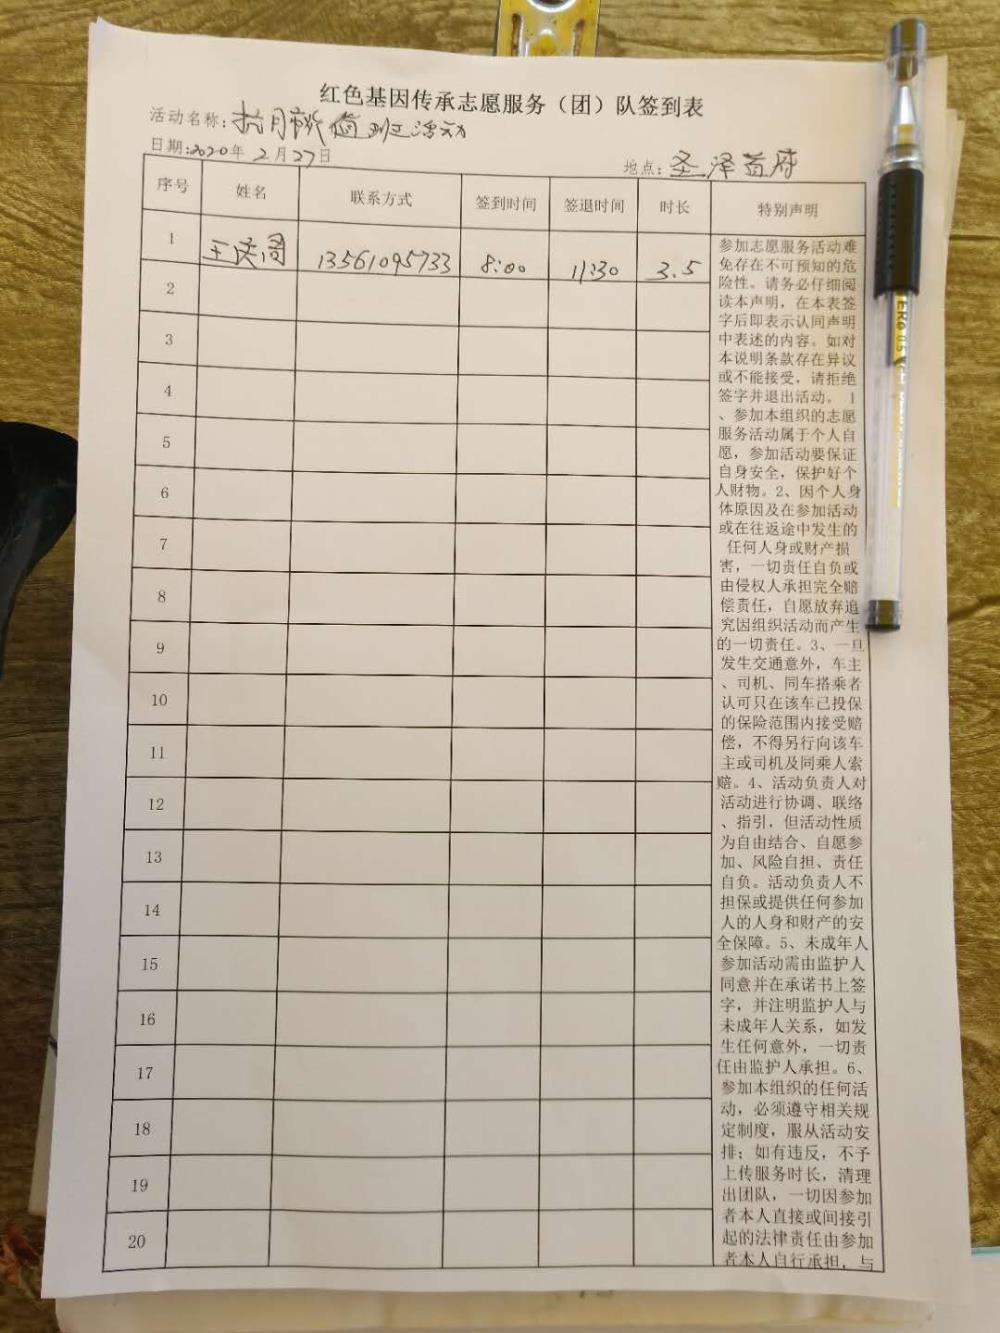 红色基因传承志愿服务（团）队签到表
活动名称：抗月市代值班活动
日期:2020年2月27日
地点：圣泽首府
序号 姓名 联系方式 签到时间 签退时间 时长 特别声明
1 13561095733 8:00 11:30 3.5
2
3
4
5
6
7
8
9
10
11
12
13
14
15
16
17
18
19
20
参加志愿服务活动难
免存在不可预知的危
险性。请务必仔细阅
读本声明，在本表签
字后即表示认同声明
中表述的内容。如对
本说明条款存在异议
或不能接受，请拒绝
签字并退出活动。 1
、参加本组织的志愿
服务活动属于个人自
愿，参加活动要保证
自身安全，保护好个
人财物。2、因个人身
体原因及在参加活动
或在往返途中发生的
任何人身或财产损
害，一切责任自负或
由侵权人承担完全赔
偿责任，自愿放弃追
究因组织活动而产生
的一切责任。3、一旦
发生交通意外，车主
、司机、同车搭乘者
认可只在该车已投保
的保险范围内接受赔
偿，不得另行向该车
主或司机及同乘人索
赔。4、活动负责人对
活动进行协调、联络
、指引，但活动性质
为自由结合、自愿参
加、风险自担、责任
自负。活动负责人不
担保或提供任何参加
人的人身和财产的安
全保障。5、未成年人
参加活动需由监护人
同意并在承诺书上签
字，并注明监护人与
未成年人关系，如发
生任何意外，一切责
任由监护人承担。6、
参加本组织的任何活
动，必须遵守相关规
定制度，服从活动安
排；如有违反，不予
上传服务时长，清理
出团队，一切因参加
者本人直接或间接引
起的法律责任由参加
者本人自行承担，与